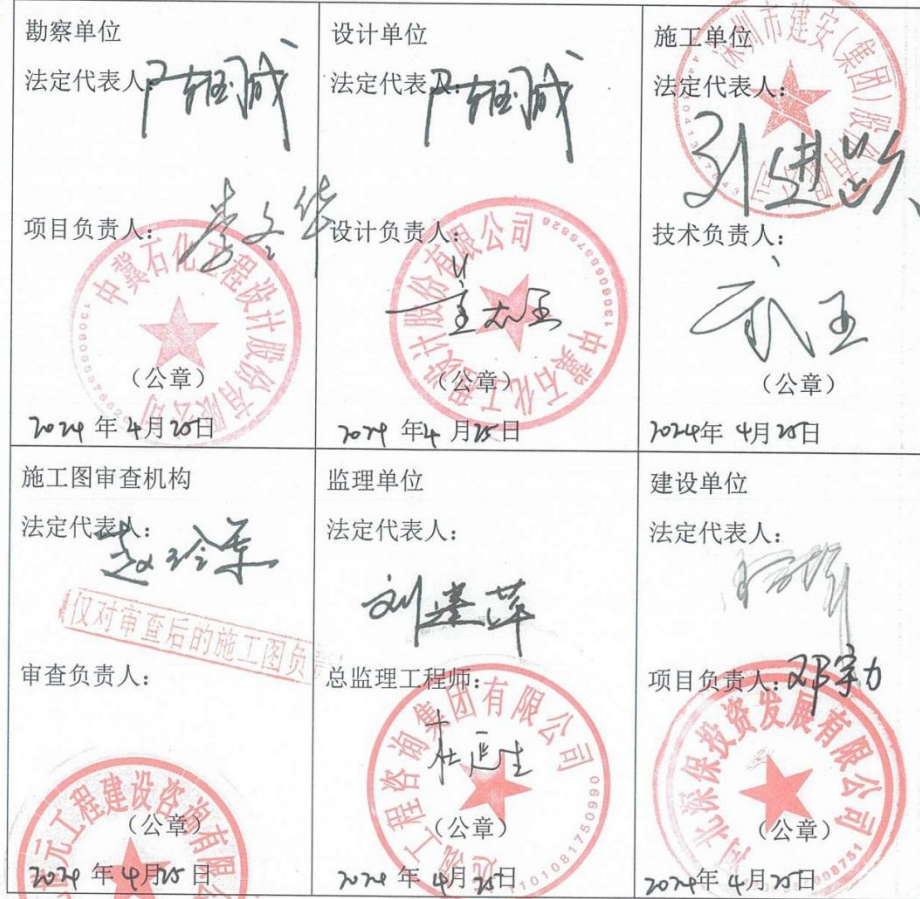 勘察单位
法定代表人:
项目负责人:
中冀石化工程设计股份有限公司
(公章)
2024年4月25日
设计单位
法定代表人:
设计负责人:
中冀石化工程设计股份有限公司
(公章)
2024年4月25日
施工单位
深圳市建安(集团)股份有限公司
法定代表人:
刘进
技术负责人:
武玉
(公章)
2024年4月25日
施工图审查机构
法定代表人:
赵玲
仅对审查后的施工图负
审查负责人:
元工程建设咨询有限公
(公章)
2024年4月25日
监理单位
法定代表人:
刘建萍
总监理工程师:
杜延生
工程咨询集团有限公司
(公章)
1101081750990
2024年4月25日
建设单位
法定代表人:
项目负责人:邓宇力
河北深保投资发展有限公司
(公章)
2024年4月25日